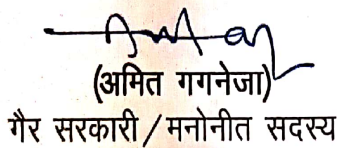 (अमित गगनेजा)
गैर सरकारी/मनोनीत सदस्य